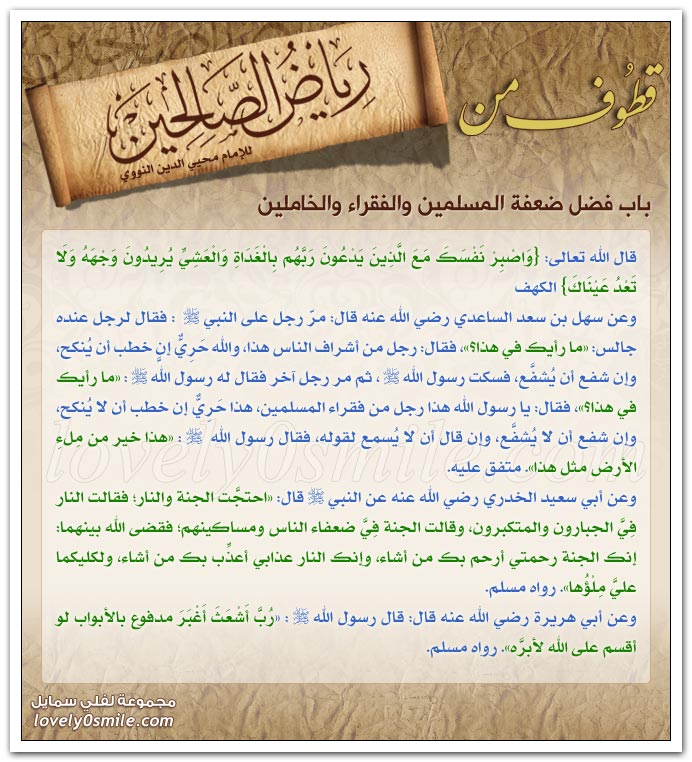 قطوف من
رياض الصالحين
للإمام محيي الدين النووي
باب فضل ضعفة المسلمين والفقراء والخاملين
قال الله تعالى: {وَاصْبِرْ نَفْسَكَ مَعَ الَّذِينَ يَدْعُونَ رَبَّهُم بِالْغَدَاةِ وَالْعَشِيِّ يُرِيدُونَ وَجْهَهُ وَلَا
تَعْدُ عَيْنَاكَ} الكهف
وعن سهل بن سعد الساعدي رضي الله عنه قال: مرّ رجل على النبي ﷺ : فقال لرجل عنده
جالس: «ما رأيك في هذا؟»، فقال: رجل من أشراف الناس هذا، والله حَرِيٌّ إن خطب أن يُنكح،
وإن شفع أن يُشفَّع، فسكت رسول الله ﷺ ، ثم مر رجل آخر فقال له رسول الله ﷺ : «ما رأيك
في هذا؟»، فقال: يا رسول الله هذا رجل من فقراء المسلمين، هذا حَرِيٌّ إن خطب أن لا يُنكح،
وإن شفع أن لا يُشفَّع، وإن قال أن لا يُسمع لقوله، فقال رسول الله ﷺ : «هذا خير من مِلءِ
الأرض مثل هذا». متفق عليه.
وعن أبي سعيد الخدري رضي الله عنه عن النبي ﷺ قال: «احتجَّت الجنة والنار؛ فقالت النار
فِيَّ الجبارون والمتكبرون، وقالت الجنة فِيَّ ضعفاء الناس ومساكينهم؛ فقضى الله بينهما:
إنك الجنة رحمتي أرحم بك من أشاء، وإنك النار عذابي أعذِّب بك من أشاء، ولكليكما
عليَّ مِلْؤُها». رواه مسلم.
وعن أبي هريرة رضي الله عنه قال: قال رسول الله ﷺ : «رُبَّ أَشْعَثَ أَغْبَرَ مدفوع بالأبواب لو
أقسم على الله لأبرَّه». رواه مسلم.
lovely0smile.com
مجموعة لفلي سمايل
lovely0smile.com